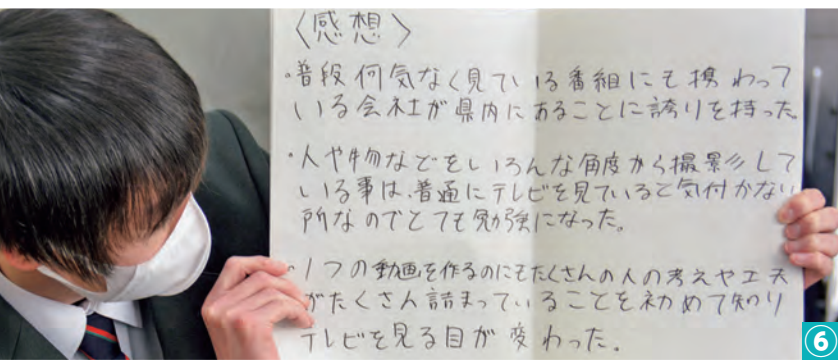 〈感想〉
・普段何気なく見ている番組にも携わって
いる会社が県内にあることに誇りを持った。
・人や物などをいろんな角度から撮影して
いる事は、普通にテレビを見ていると気付かない
所なのでとても勉強になった。
・1つの動画を作るのにもたくさんの人の考えや工夫
がたくさん詰まっていることを初めて知り
テレビを見る目が変わった。
⑥